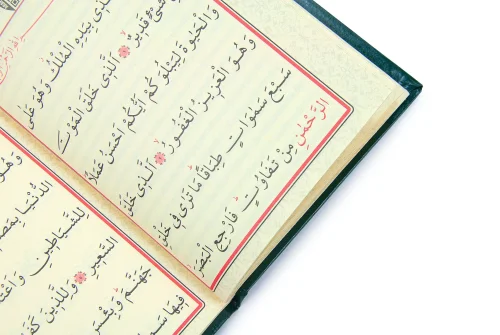 بِيَدِهِ الْمُلْكُ وَهُوَ عَلٰى
شَيْءٍ قَدِيرٌ ❁ اَلَّذِي خَلَقَ الْمَوْتَ
وَالْحَيٰوةَ لِيَبْلُوَكُمْ اَيُّكُمْ اَحْسَنُ عَمَلًا
وَهُوَ الْعَزِيزُ الْغَفُورُ ❁ اَلَّذِي خَلَقَ
سَبْعَ سَمٰوَاتٍ طِبَاقًا مَا تَرٰى فِي خَلْقِ
الرَّحْمٰنِ مِنْ تَفَاوُتٍ فَارْجِعِ الْبَصَرَ
وَهُوَ
الدُّنْيَا بِمَصَ
لِلشَّيَاطِينِ وَاَعْتَ
السَّعِيرِ ❁ وَلِلَّذِينَ كَفَ
جَهَنَّمَ وَبِئْسَ
فِيهَا